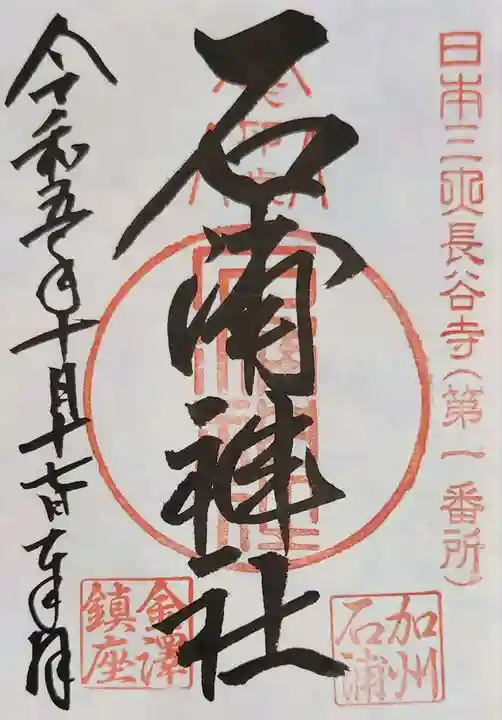 日本三大長谷寺(第一番所)
石浦神社
加州
石浦
金澤
鎮座
令和五年十月十七日奉拝